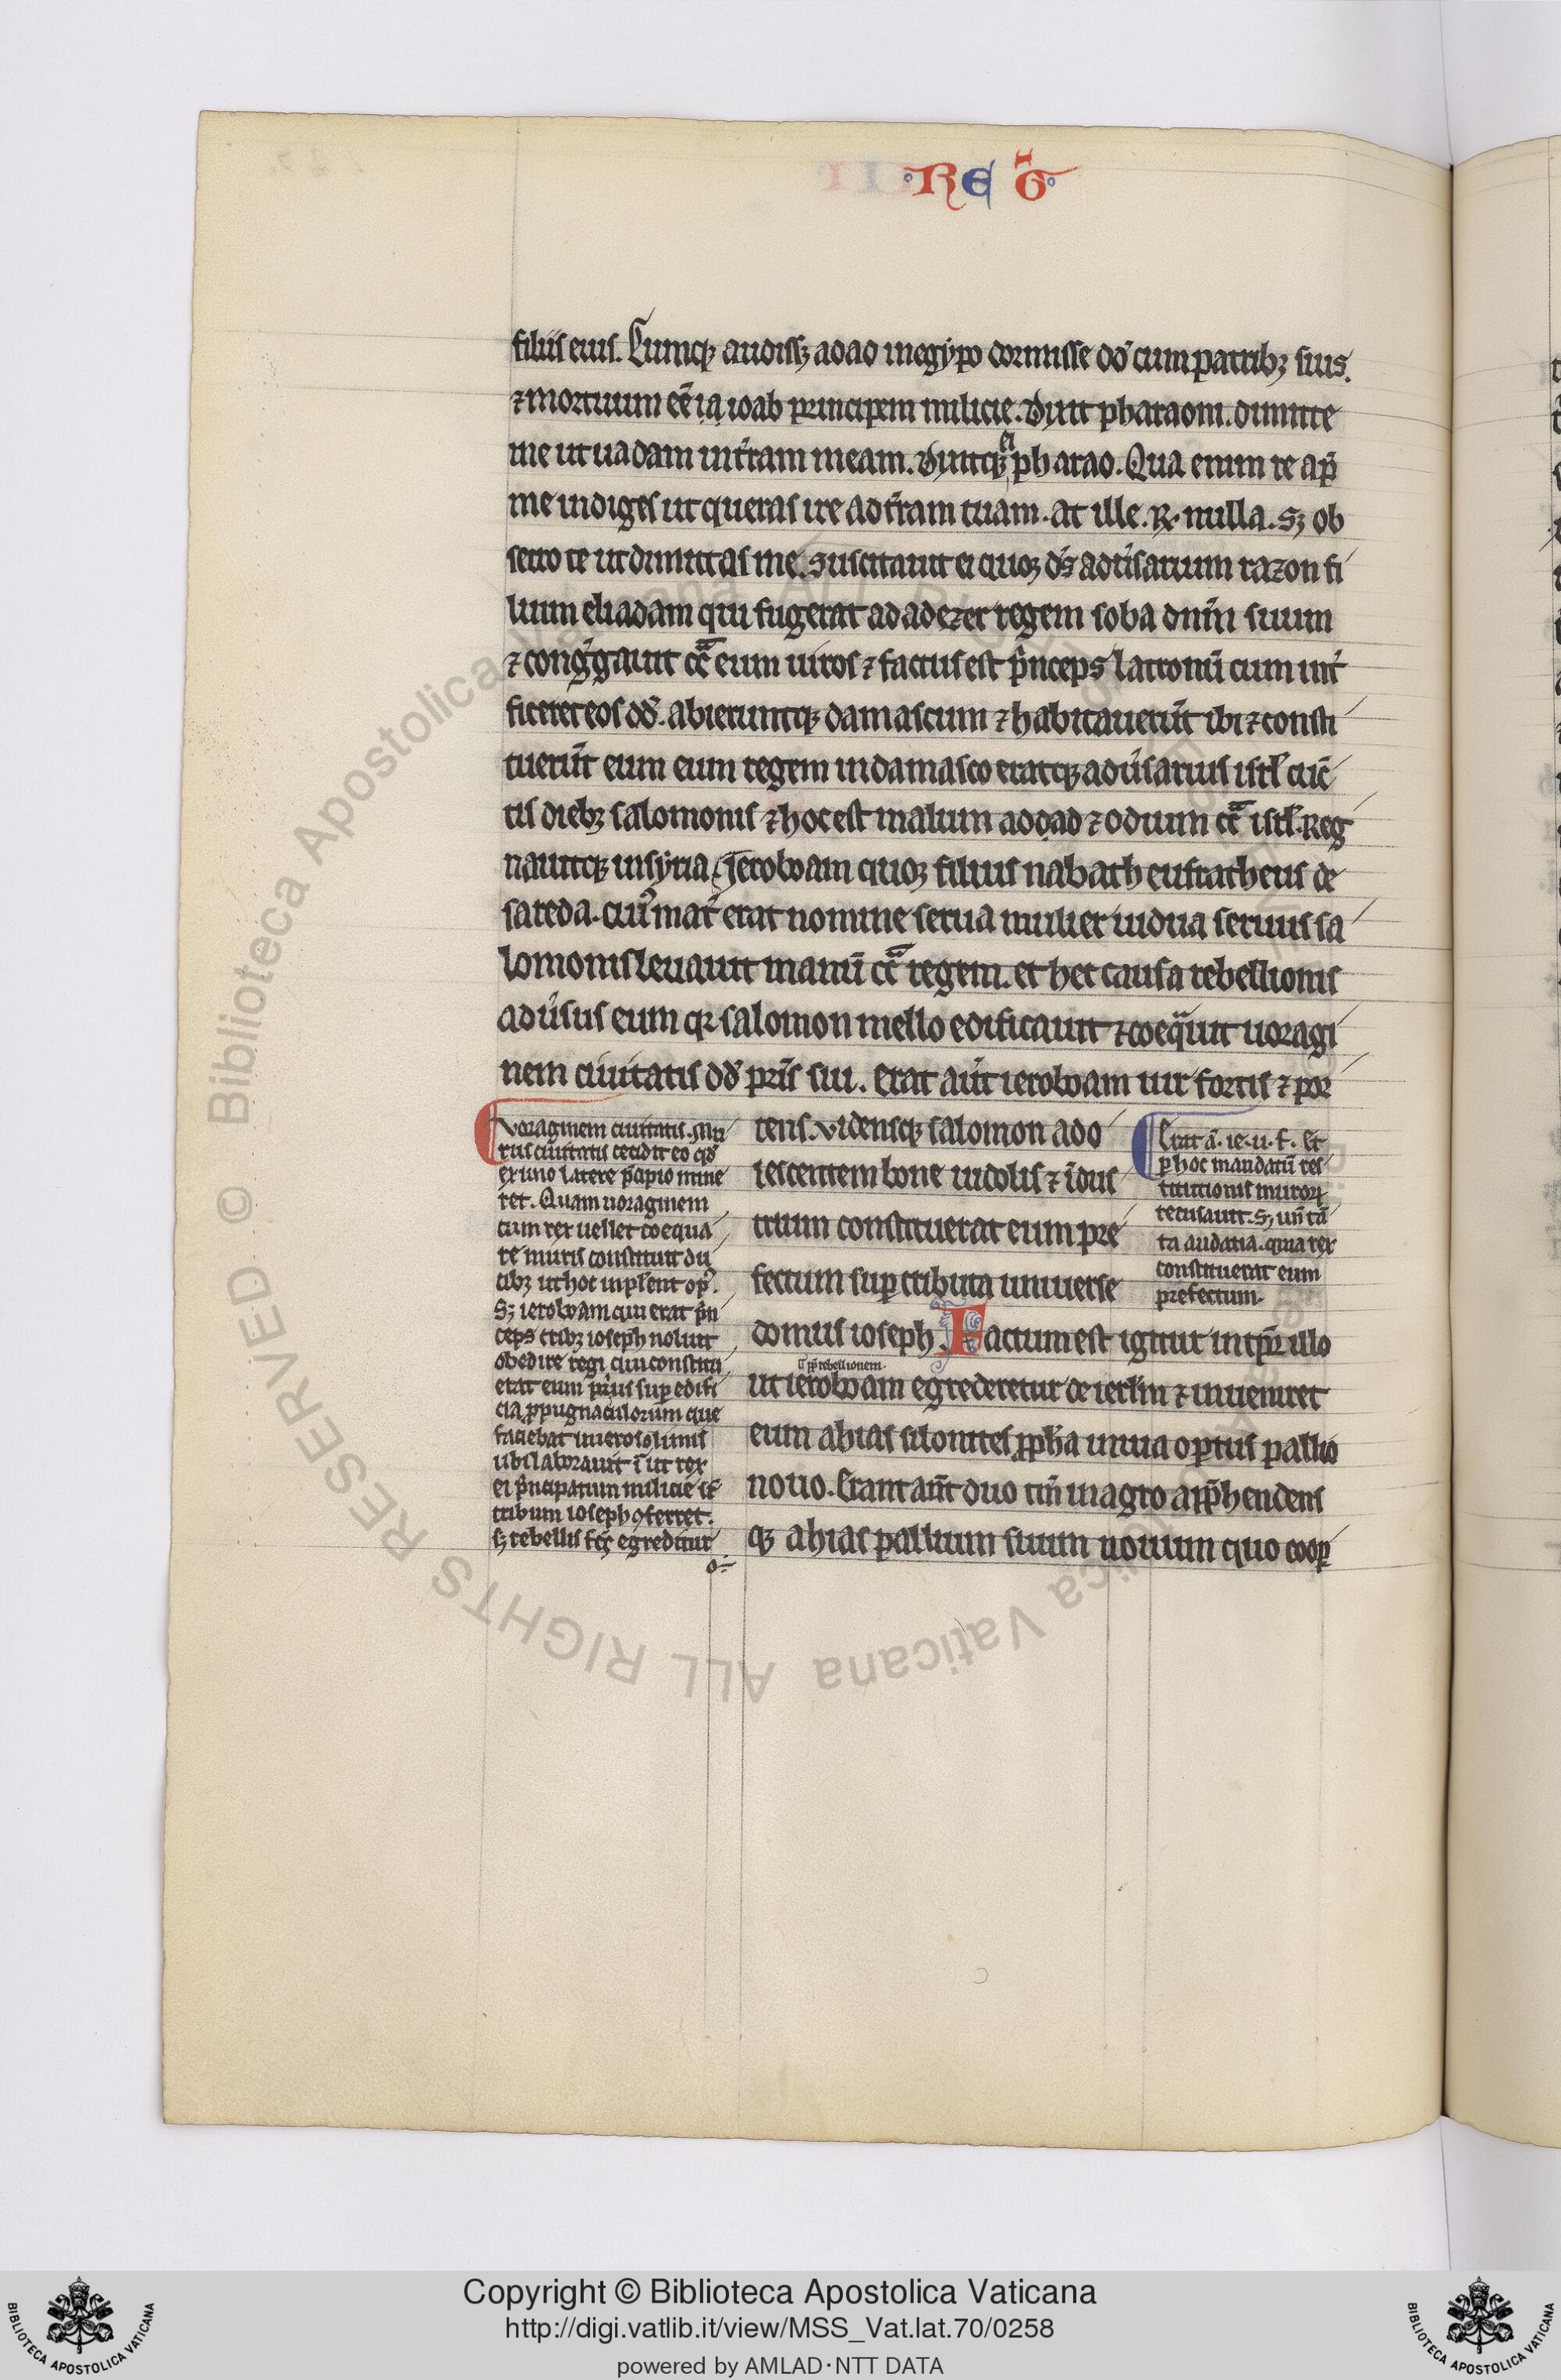 REG̃
filiis eius. Cumq; audiss; adad inegypo dormisse dđ cum patribȝ suis.
⁊ mortuum eē̃ ia ioab principem milicie. Dixit pharaoni. dimitte
me ut uadam int̃ram meam. Dixitq; ei pharao. Qua enim re ap̃
me indiges ut queras ire ad t̃ram tuam. at ille. R. nulla. sȝ ob
secro te ut dimittas me. Suscitauit ei quoȝ dš aduʼsarium razon fi
lium eliadam qui fugerat adadezer regem soba dnm̃ suum
⁊ congʼgauit cc̃ eum uiros ⁊ factus est pʼnceps latronũ cum intʼ
ficeret eos dđ. abieruntq; damascum ⁊ habitauerũt ibi ⁊ consti
tuerũt eum eum regem indamasco eratq; aduʼsarius isrl̃ cũc
tis diebȝ salomonis ⁊ hoc est malum adad ⁊ odium cc̃ isrl̃. Reg
nauitq; insyria. Jeroboam quoȝ filius nabath eufratheus de
sareda. cuiʼ matʼ erat nomine serua mulier uidua seruus sa
lomonis leuauit manũ cc̃ regem. et hec causa rebellionis
aduʼsus eum qr salomon mello edificauit ⁊ coeq̃uit uoragi
nem ciuitatis dđ pr̃is sui. Erat aũt ieroboam uir fortis ⁊ po
tens. Vidensq; salomon ado
lescentem bone indolis ⁊ ĩdus
trium constituerat eum pre
fectum sup tributa uniuerse
domus ioseph. Factum est igitur intp̃r illo
ł p̃ rebellionem.
ut ieroboam egrederetur de ierlm̃ ⁊ inueniret
eum ahias silonites pph̃a inuia optus pallio
nouo. Erant aũt duo tm̃ inagro appʼhendens
q; ahias pallium suum nouum quo coop
Voraginem ciuitatis. Mu
rus ciuitatis cecidit eo qđ
ex uno latere pʼcipicio mine
ret. Quam uoraginem
cum rex uellet coequa
re muris constituit du
cibȝ ut hoc inplʼent opʼ.
Sȝ ieroboam cui erat pʼn
ceps tribȝ ioseph noluit
obedire regi cui constitu
erat eum pʼrius sup edifi
cia ppugnaculorum que
faciebat iuerosolimis
ubi laborauit ĩ ut rex
ei pʼncipatum milicie ił
tribum ioseph ꝯferret.
sȝ rebellis fc̃s egreditur
Erat ã. ie. u. f. Et
p hoc mandatũ res
titutionis muroꝝ
recusauit. Sȝ uñ tã
ta audatia. quia rex
constituerat eum
prefectum.
Copyright © Biblioteca Apostolica Vaticana
http://digi.vatlib.it/view/MSS_Vat.lat.70/0258
powered by AMLAD·NTT DATA
BIBLIOTECA APOSTOLICA VATICANA
BIBLIOTECA APOSTOLICA VATICANA